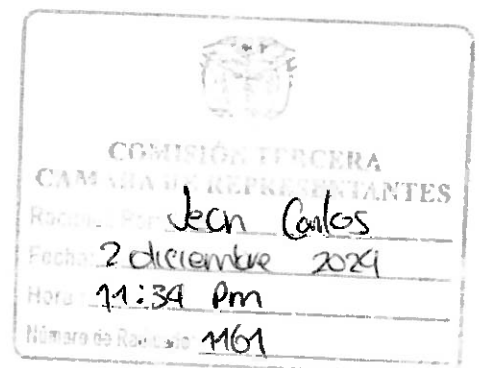 COMISIÓN TERCERA
CAMARA DE REPRESENTANTES
Recibido Por: Jean Carlos
Fecha: 2 diciembre 2024
Hora: 11:34 Pm
Número de Radicado: 1161